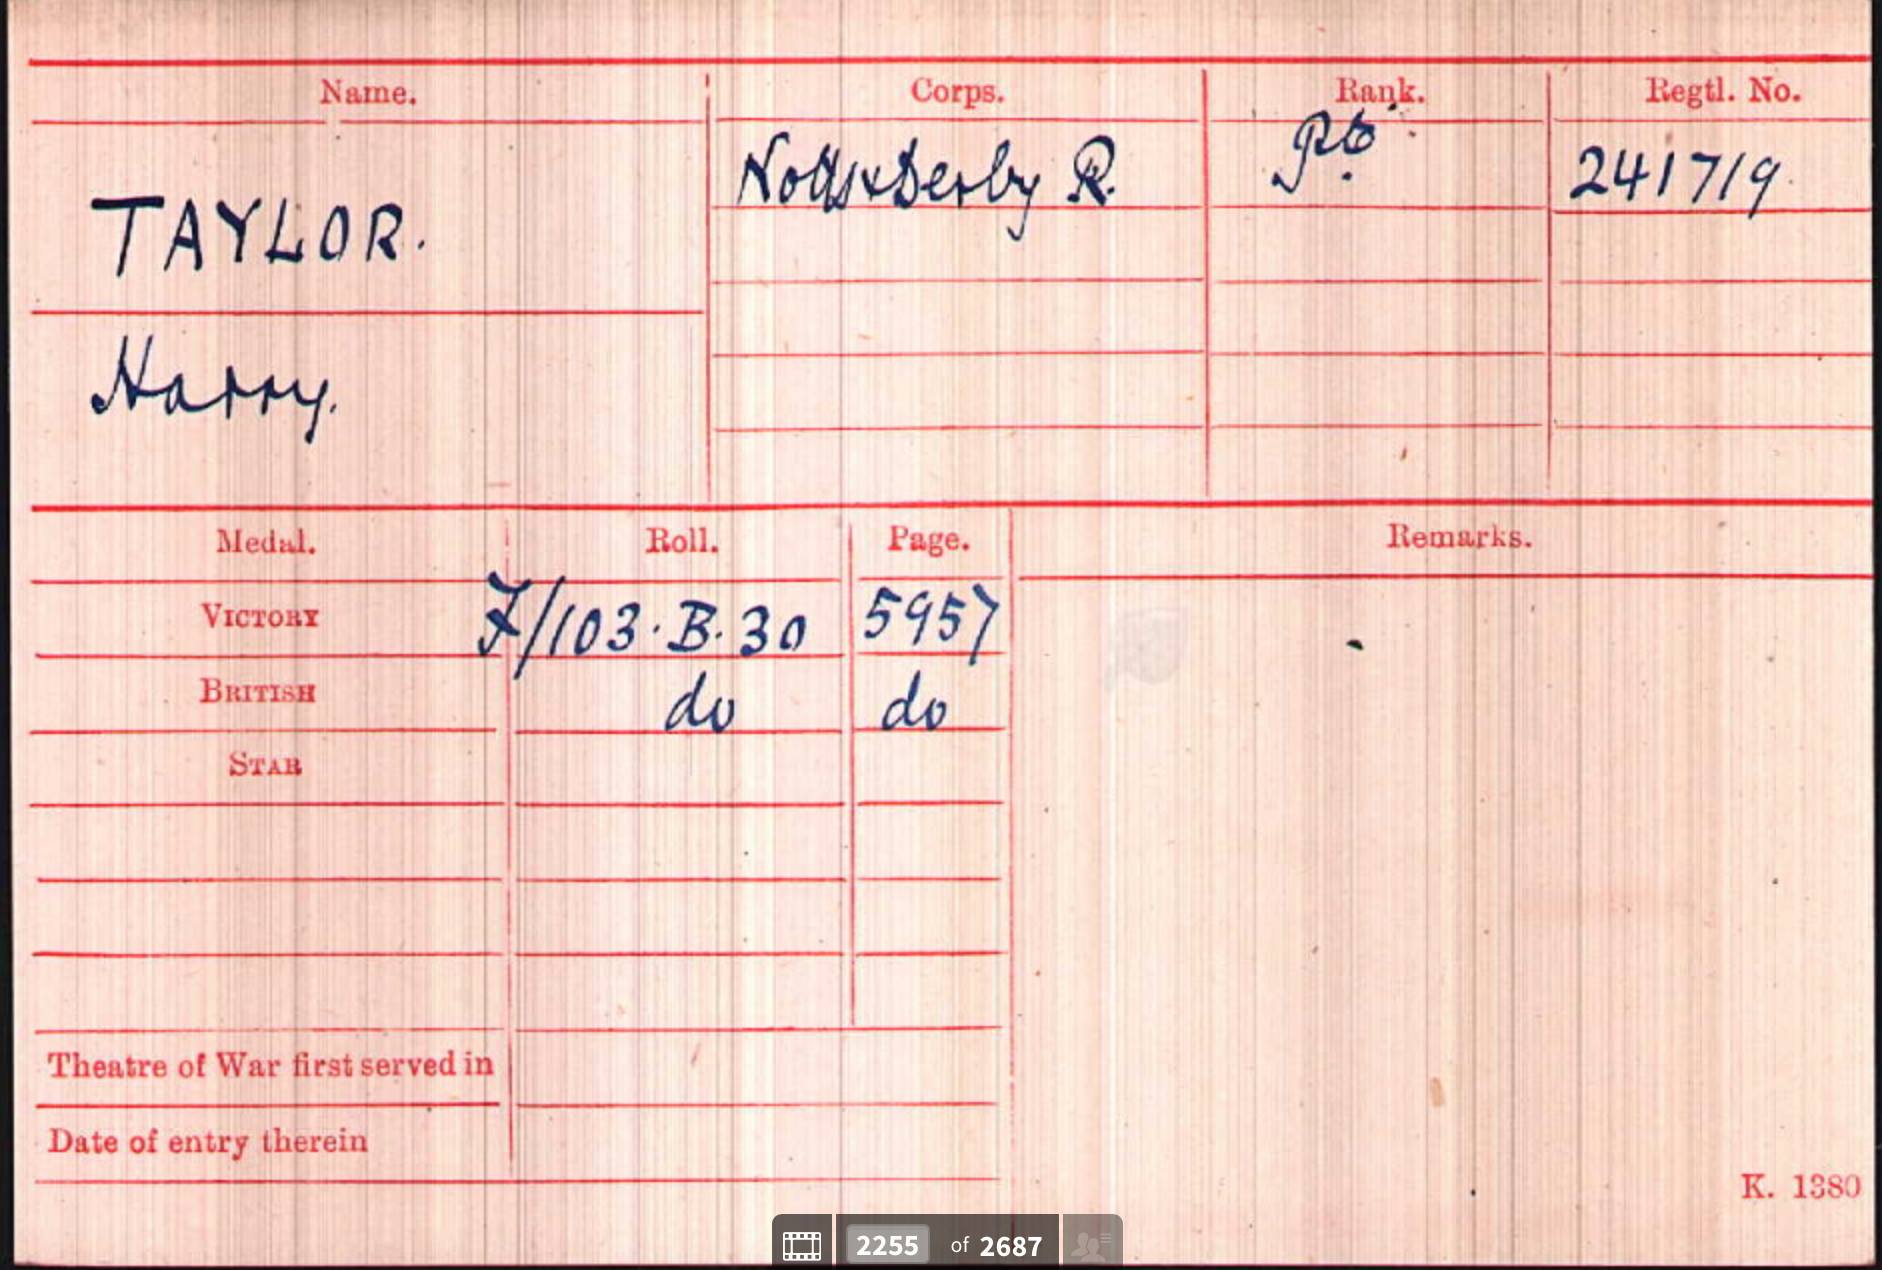 Name. Corps. Rank. Regtl. No.
Notts & Derby R. Pte. 241719
TAYLOR.
Harry.
Medal. Roll. Page. Remarks.
VICTORY F/103.B.30 5957
BRITISH do do
STAR
Theatre of War first served in
Date of entry therein
K. 1380
2255 of 2687